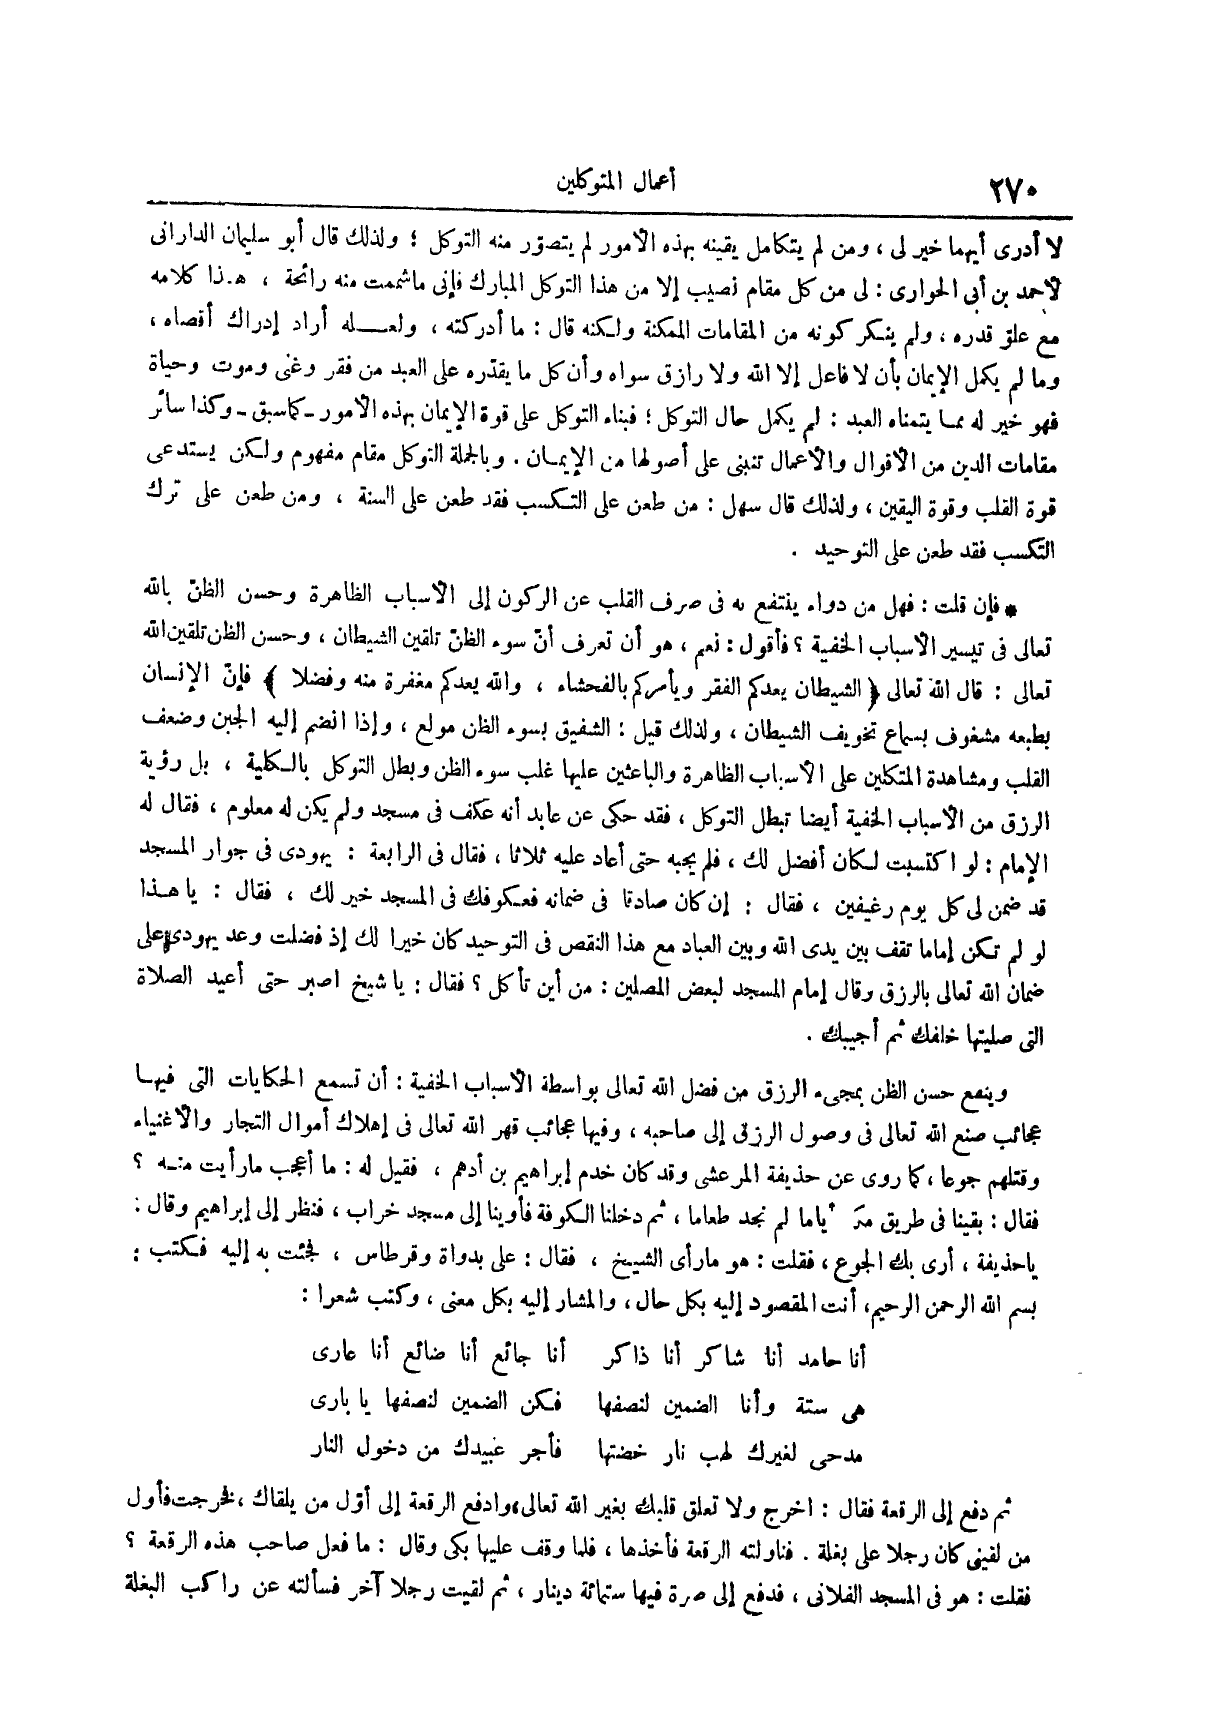 ٢٧٠
أعمال المتوكلين
لا أدرى أيهما خير لى ، ومن لم يتكامل يقينه بهذه الأمور لم يتصوّر منه التوكل ؛ ولذلك قال أبو سليمان الدارانى
لأحمد بن أبى الحوارى : لى من كل مقام نصيب إلا من هذا التوكل المبارك فإنى ماشممت منه رائحة ، هذا كلامه
مع علوّ قدره ، ولم ينكر كونه من المقامات الممكنة ولكنه قال : ما أدركته ، ولعله أراد إدراك أقصاه ،
وما لم يكمل الإيمان بأن لا فاعل إلا الله ولا رازق سواه وأن كل ما يقدّره على العبد من فقر وغنى وموت وحياة
فهو خير له مما يتمناه العبد : لم يكمل حال التوكل ؛ فبناء التوكل على قوة الإيمان بهذه الأمور ـ كماسبق ـ وكذا سائر
مقامات الدين من الأقوال والأعمال تنبنى على أصولها من الإيمان . وبالجملة التوكل مقام مفهوم ولكن يستدعى
قوة القلب وقوة اليقين ، ولذلك قال سهل : من طعن على التكسب فقد طعن على السنة ، ومن طعن على ترك
التكسب فقد طعن على التوحيد .
* فإن قلت : فهل من دواء ينتفع به فى صرف القلب عن الركون إلى الأسباب الظاهرة وحسن الظنّ بالله
تعالى فى تيسير الأسباب الخفية ؟ فأقول : نعم ، هو أن تعرف أنّ سوء الظنّ تلقين الشيطان ، وحسن الظن تلقين الله
تعالى : قال الله تعالى ﴿ الشيطان يعدكم الفقر ويأمركم بالفحشاء ، والله يعدكم مغفرة منه وفضلا ﴾ فإنّ الإنسان
بطبعه مشغوف بسماع تخويف الشيطان ، ولذلك قيل : الشفيق بسوء الظن مولع ، وإذا انضم إليه الجبن وضعف
القلب ومشاهدة المتكلين على الأسباب الظاهرة والباعثين عليها غلب سوء الظن وبطل التوكل بالكلية ، بل رؤية
الرزق من الأسباب الخفية أيضا تبطل التوكل ، فقد حكى عن عابد أنه عكف فى مسجد ولم يكن له معلوم ، فقال له
الإمام : لو اكتسبت لكان أفضل لك ، فلم يجبه حتى أعاد عليه ثلاثا ، فقال فى الرابعة : يهودى فى جوار المسجد
قد ضمن لى كل يوم رغيفين ، فقال : إن كان صادقا فى ضمانه فعكوفك فى المسجد خير لك ، فقال : يا هذا
لو لم تكن إماما تقف بين يدى الله وبين العباد مع هذا النقص فى التوحيد كان خيرا لك إذ فضلت وعد يهودى على
ضمان الله تعالى بالرزق وقال إمام المسجد لبعض المصلين : من أين تأكل ؟ فقال : يا شيخ اصبر حتى أعيد الصلاة
التى صليتها خلفك ثم أجيبك .
وينفع حسن الظن بمجىء الرزق من فضل الله تعالى بواسطة الأسباب الخفية : أن تسمع الحكايات التى فيها
عجائب صنع الله تعالى فى وصول الرزق إلى صاحبه ، وفيها عجائب قهر الله تعالى فى إهلاك أموال التجار والأغنياء
وقتلهم جوعا ، كما روى عن حذيفة المرعشى وقد كان خدم إبراهيم بن أدهم ، فقيل له : ما أعجب مارأيت منه ؟
فقال : بقينا فى طريق مكة أياما لم نجد طعاما ، ثم دخلنا الكوفة فأوينا إلى مسجد خراب ، فنظر إلى إبراهيم وقال :
ياحذيفة ، أرى بك الجوع ، فقلت : هو مارأى الشيخ ، فقال : على بدواة وقرطاس ، فجئت به إليه فكتب :
بسم الله الرحمن الرحيم، أنت المقصود إليه بكل حال، والمشار إليه بكل معنى ، وكتب شعرا :
أنا حامد أنا شاكر أنا ذاكر أنا جائع أنا ضائع أنا عارى
هى ستة وأنا الضمين لنصفها فكن الضمين لنصفها يا بارى
مدحى لغيرك لهب نار خضتها فأجر عبيدك من دخول النار
ثم دفع إلى الرقعة فقال : اخرج ولا تعلق قلبك بغير الله تعالى، وادفع الرقعة إلى أوّل من يلقاك ، فخرجت فأول
من لقينى كان رجلا على بغلة . فناولته الرقعة فأخذها ، فلما وقف عليها بكى وقال : ما فعل صاحب هذه الرقعة ؟
فقلت : هو فى المسجد الفلانى ، فدفع إلى صرة فيها ستمائة دينار ، ثم لقيت رجلا آخر فسألته عن راكب البغلة